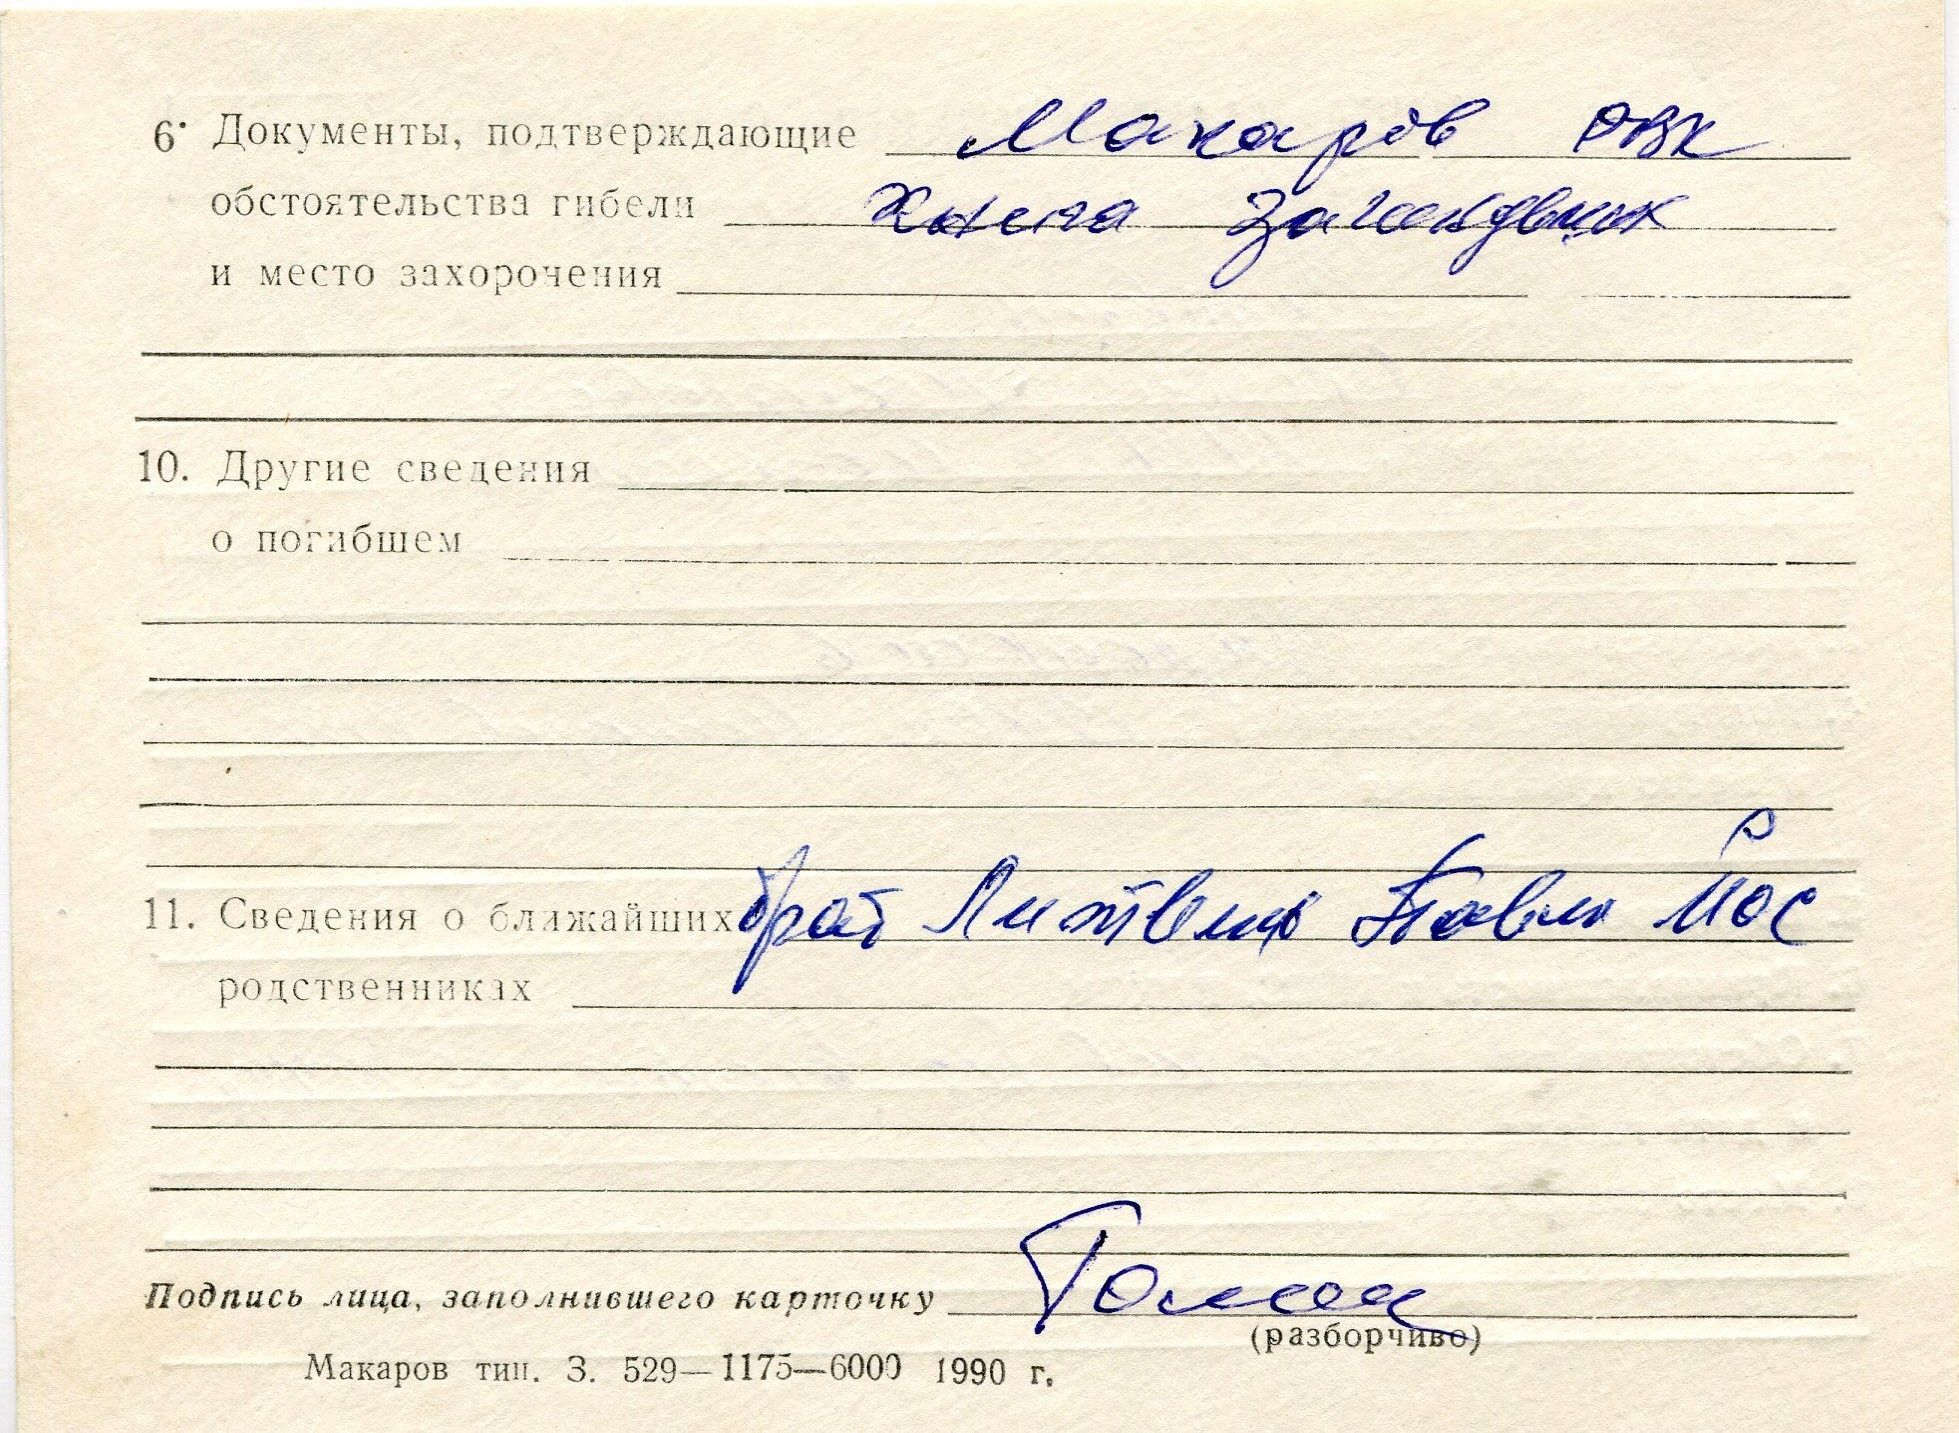 6. Документы, подтверждающие Макарів РВК
обстоятельства гибели книга
и место захорочения
10. Другие сведения
о погибшем
11. Сведения о ближайших брат Павло Йос
родственниках
Подпись лица, заполнившего карточку
(разборчиво)
Макаров тип. З. 529—1175—6000 1990 г.